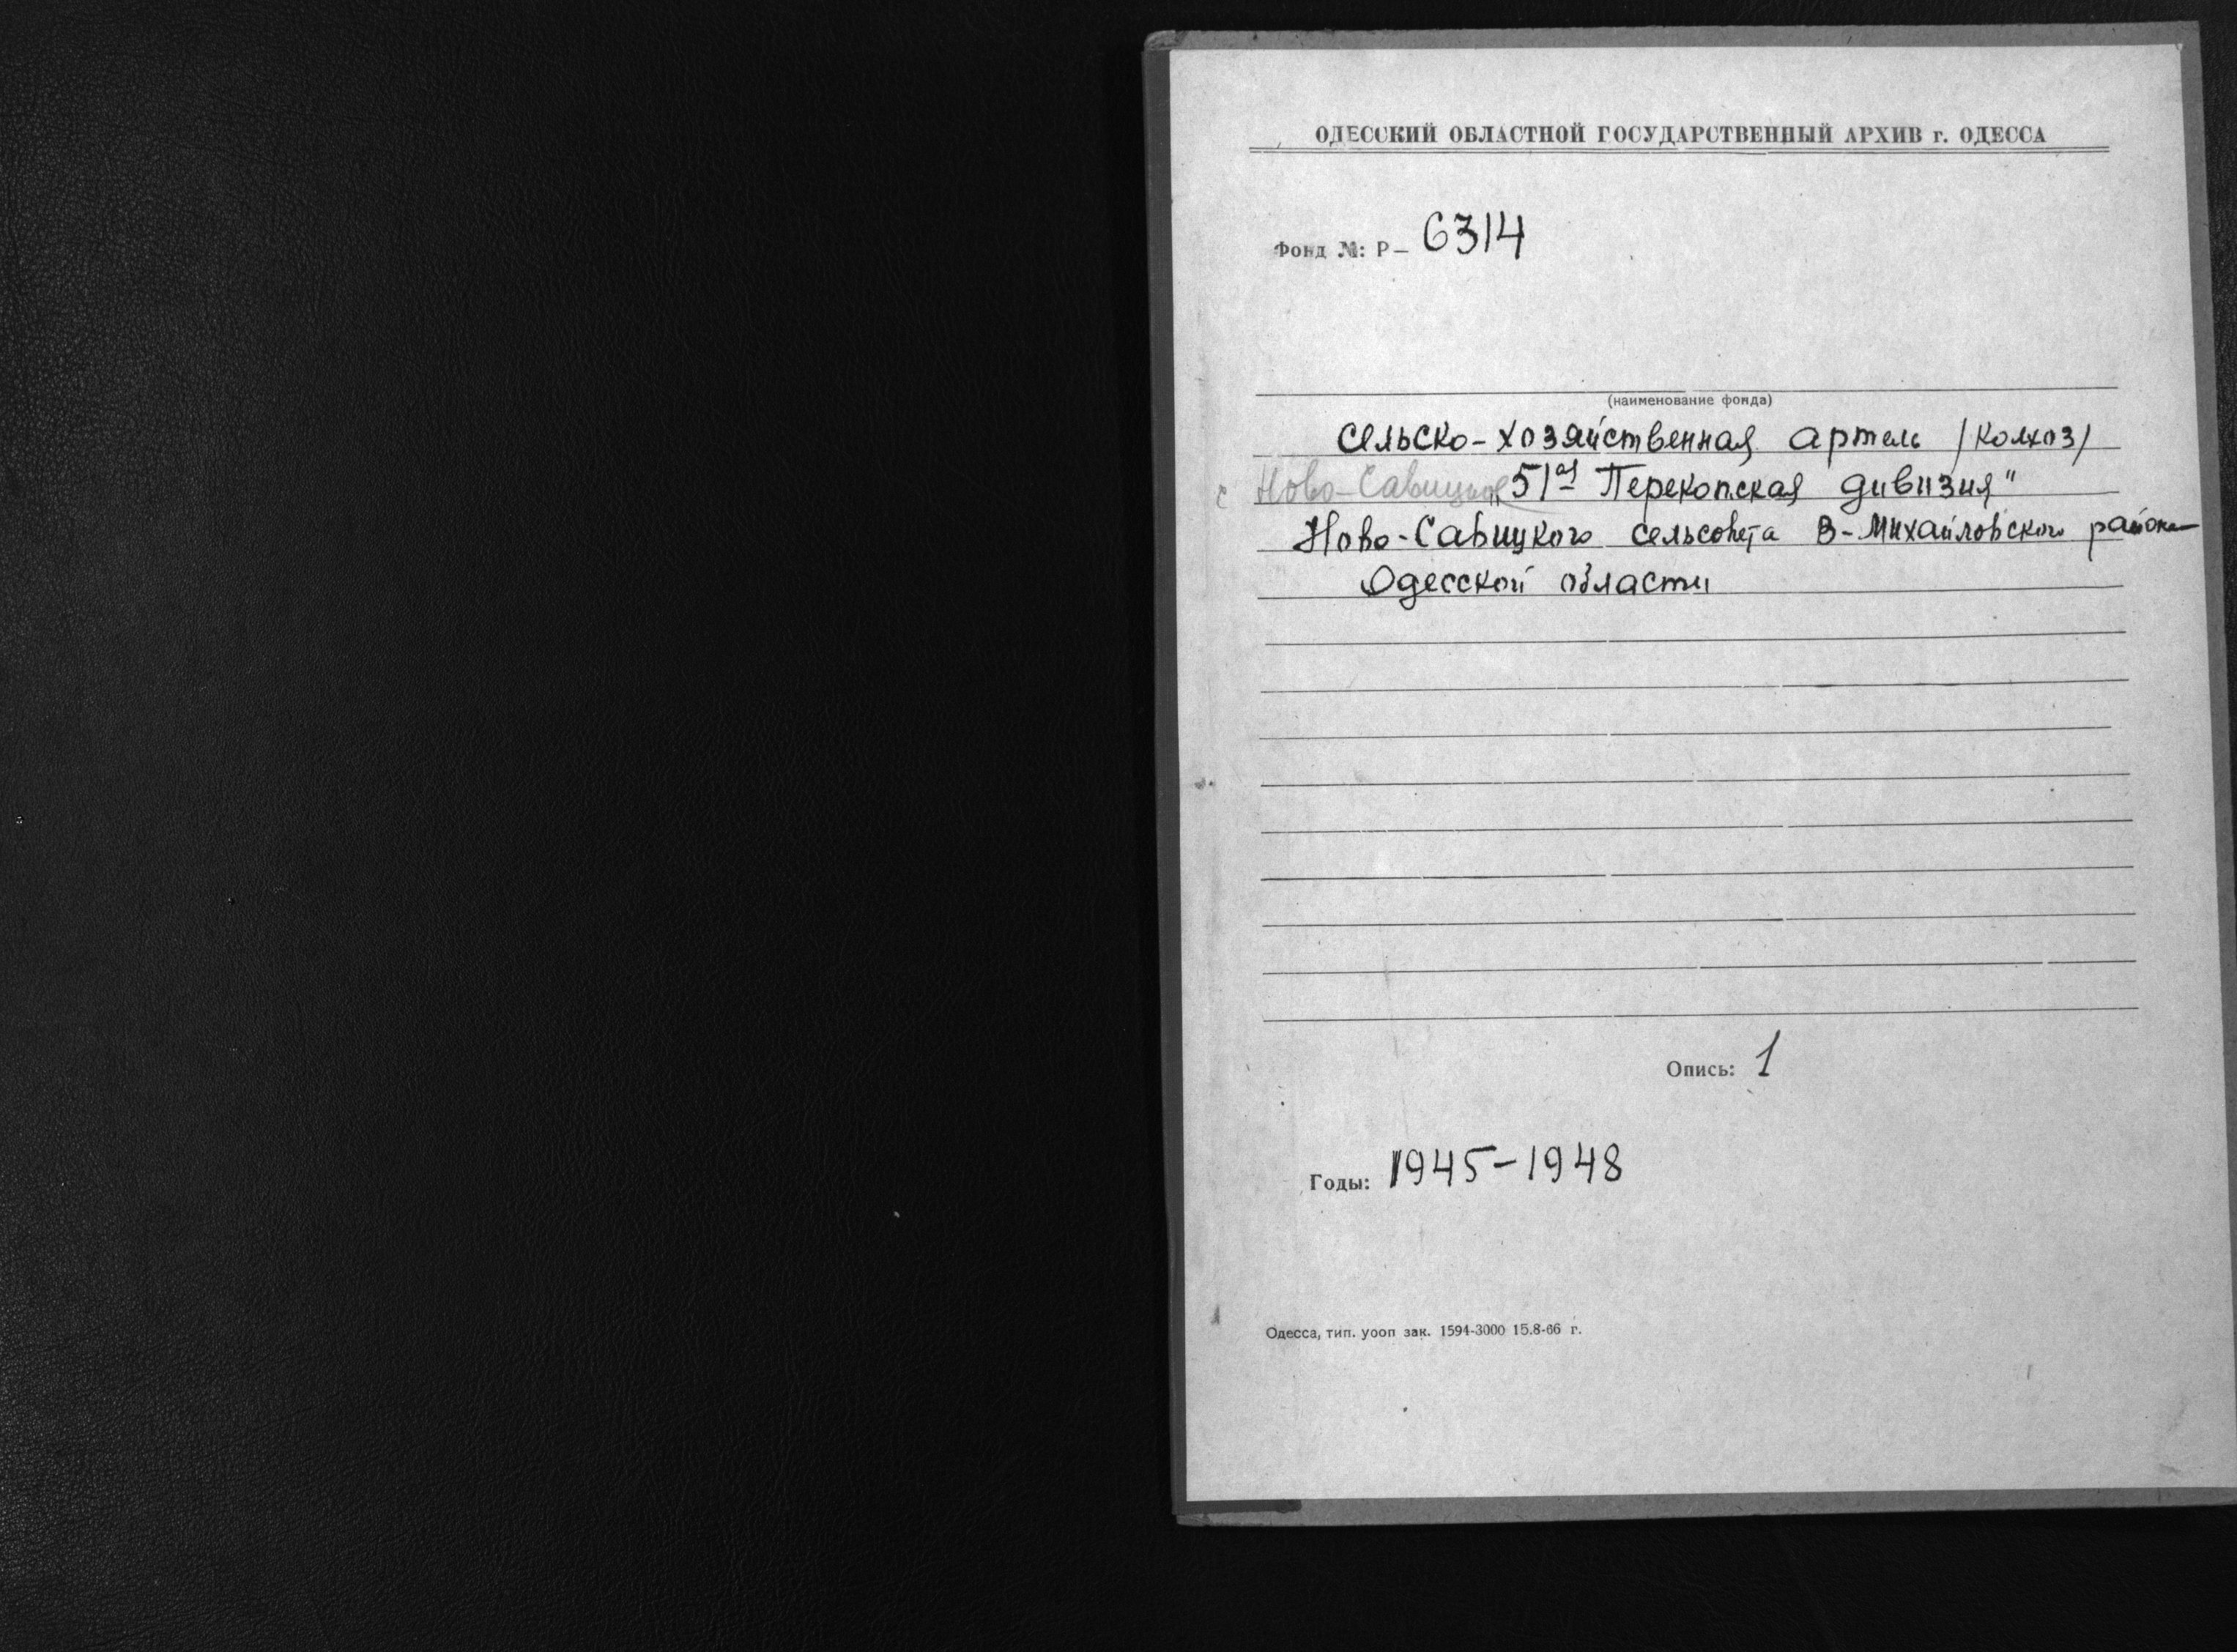 ОДЕССКИЙ ОБЛАСТНОЙ ГОСУДАРСТВЕННЫЙ АРХИВ г. ОДЕССА
Фонд №: Р— 6314
(наименование фонда)
Сельско-хозяйственная артель /колхоз/
с Ново-Савицкое „51ая Перекопская дивизия"
Ново-Савицкого сельсовета В-Михайловского района
Одесской области
Опись: 1
Годы: 1945-1948
Одесса, тип. уооп зак. 1594-3000 15.8-66 г.